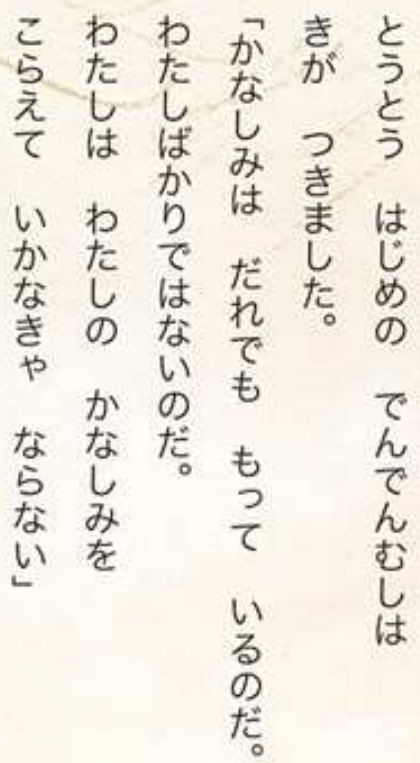 とうとう　はじめの　でんでんむしは
きが　つきました。
「かなしみは　だれでも　もって　いるのだ。
わたしばかりではないのだ。
わたしは　わたしの　かなしみを
こらえて　いかなきゃ　ならない」